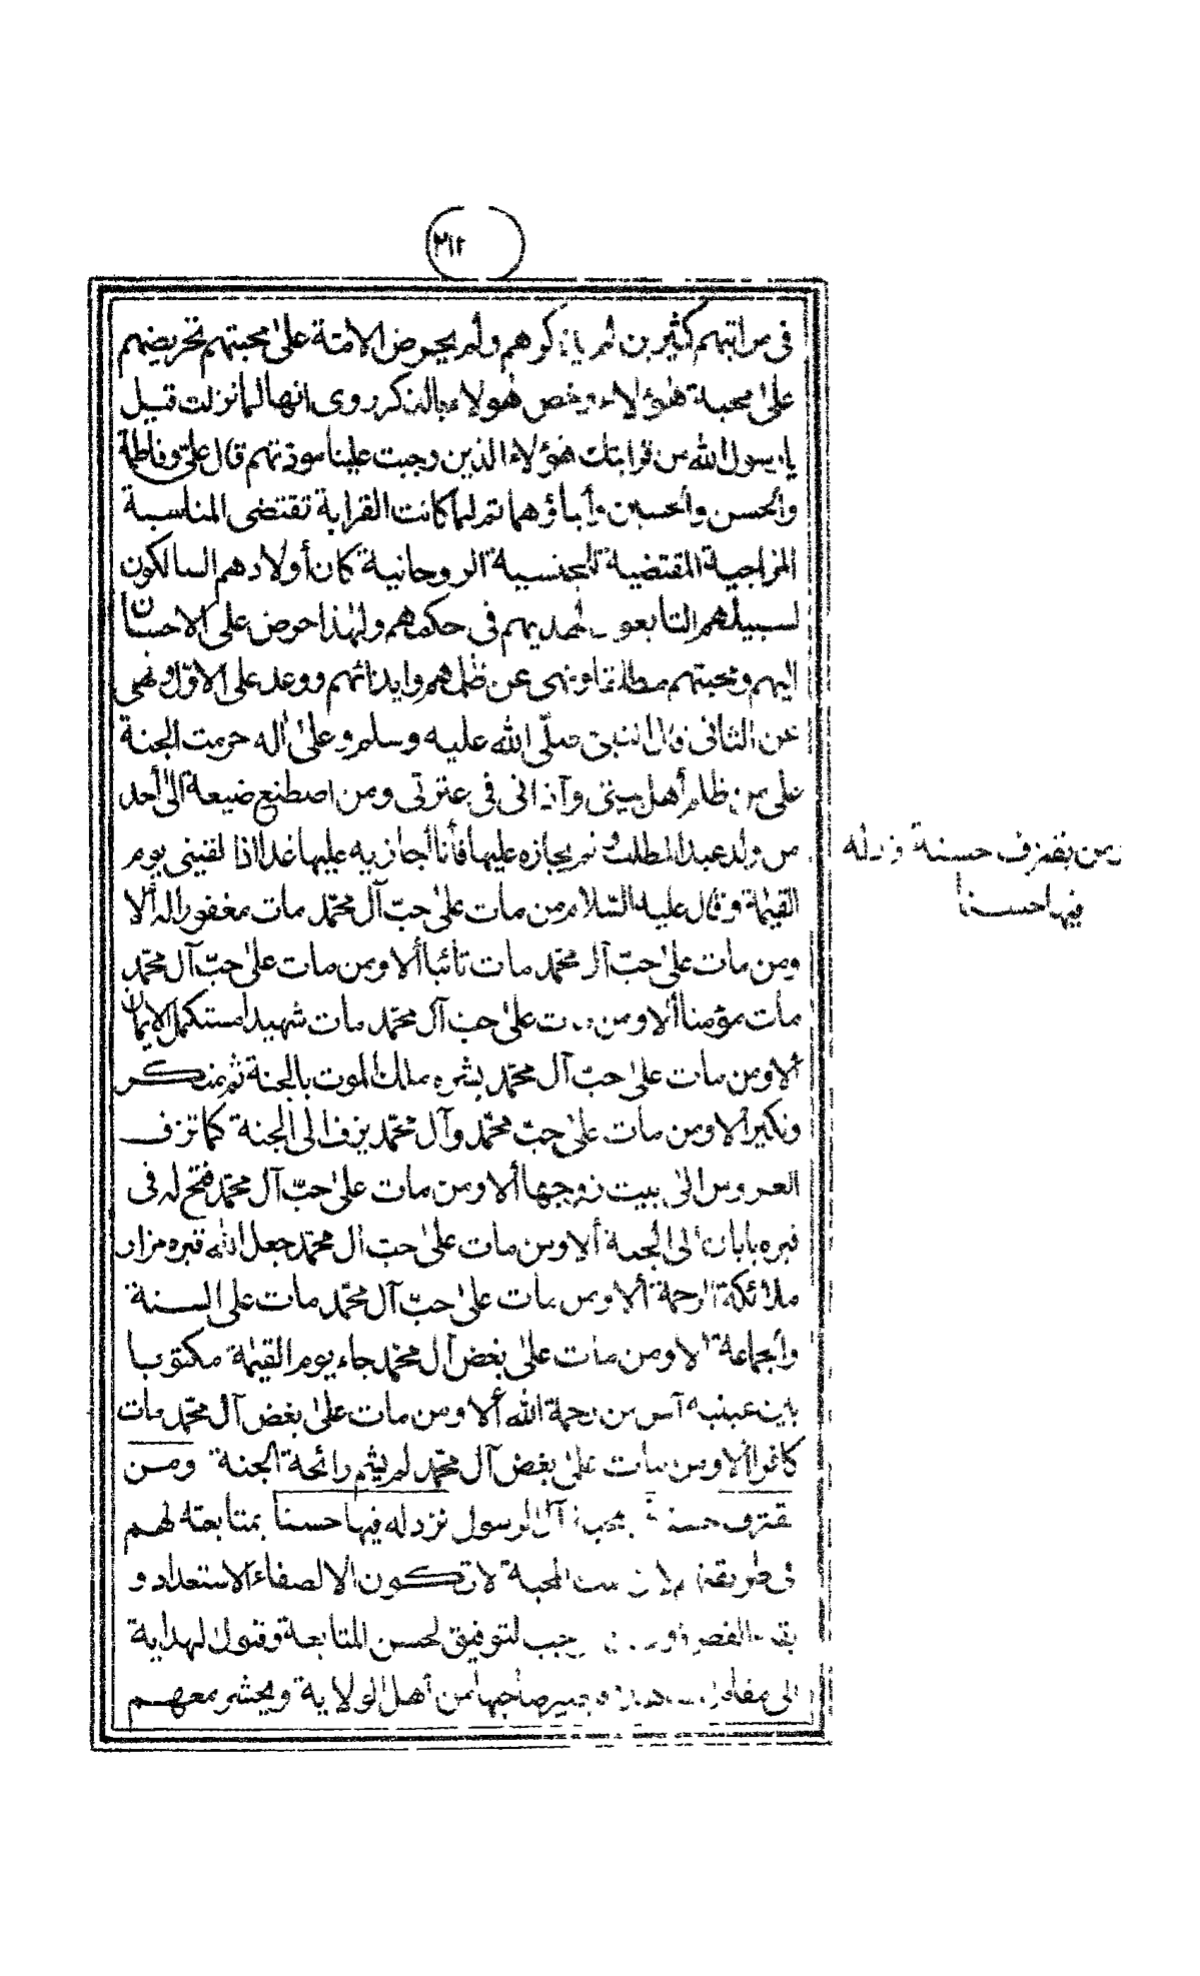 ٣١٢
فى مراتبهم كثيرين لم يذكرهم ولم يحرض الامّة علىٰ محبتهم تحريضهم
علىٰ محبة هٰؤلاء وخص هٰولاء بالذكر روى انها لما نزلت قيل
يا رسول الله من قرابتك هٰؤلاء الذين وجبت علينا مودتهم قال علىّ وفاطمة
والحسن والحسين وأبناؤهما ثم لما كانت القرابة تقتضى المناسبة
المزاجية المقتضية للجنسية الروحانية كان أولادهم السالكون
لسبيلهم التابعو لهديهم فى حكمهم ولهٰذا حرض على الاحسان
اليهم ومحبتهم مطلقا ونهى عن ظلمهم وايذائهم ووعد على الاوّل ونهى
عن الثانى قال النبى صلّى الله عليه وسلم وعلىٰ اٰله حرمت الجنة
على من ظلم أهل بيتى وآذانى فى عترتى ومن اصطنع ضيعة الىٰ أحد
من ولد عبد المطلب ولم يجازه عليها فأنا أجازيه عليها غدا اذا لقينى يوم
القيٰمة وقال عليه السّلام من مات علىٰ حبّ آل محمّد مات مغفورا له ألا
ومن مات علىٰ حبّ آل محمّد مات تائبا ألا ومن مات علىٰ حبّ آل محمّد
مات مؤمنا ألا ومن مات علىٰ حبّ آل محمّد مات شهيدا مستكمل الايمان
ألا ومن مات علىٰ حبّ آل محمّد بشره ملك الموت بالجنة ثم منكر
ونكير ألا ومن مات علىٰ حبّ محمّد وآل محمّد يزف الى الجنة كما تزف
العروس الىٰ بيت زوجها ألا ومن مات علىٰ حبّ آل محمّد فتح له فى
قبره بابان الى الجنة ألا ومن مات علىٰ حبّ اٰل محمّد جعل الله قبره مزار
ملائكة الرحمة ألا ومن مات علىٰ حبّ آل محمّد مات على السنة
والجماعة ألا ومن مات علىٰ بغض آل محمّد جاء يوم القيٰمة مكتوبا
بين عينيه آيس من رحمة الله ألا ومن مات علىٰ بغض آل محمّد مات
كافرا ألا ومن مات علىٰ بغض آل محمّد لم يشم رائحة الجنة ومن
يقترف حسنة بمحبة آل الرسول نزد له فيها حسنا بمتابعته لهم
فى طريقتهم لان المحبة لا تكون الا لصفاء الاستعداد و
الفطرة لتوفيق لحسن المتابعة وقبول الهداية
الى صاحبها من أهل الولاية ويحشر معهم
ومن يقترف حسنة نزد له
فيها حسنا